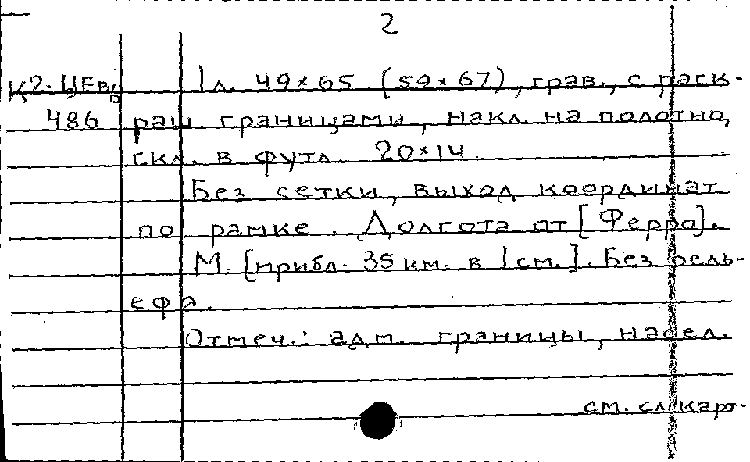 2
К2-ЦЕв 1 л. 49×65 (59×67), грав., с раск-
486 раш границами, накл. на полотно,
скл. в футл. 20×14
Без сетки, выход координат
по рамке. Долгота от [Ферро].
М. [прибл. 35 км. в 1 см.]. Без рель-
ефа.
Отмеч.: адм. границы, насел.
см. сл карт.